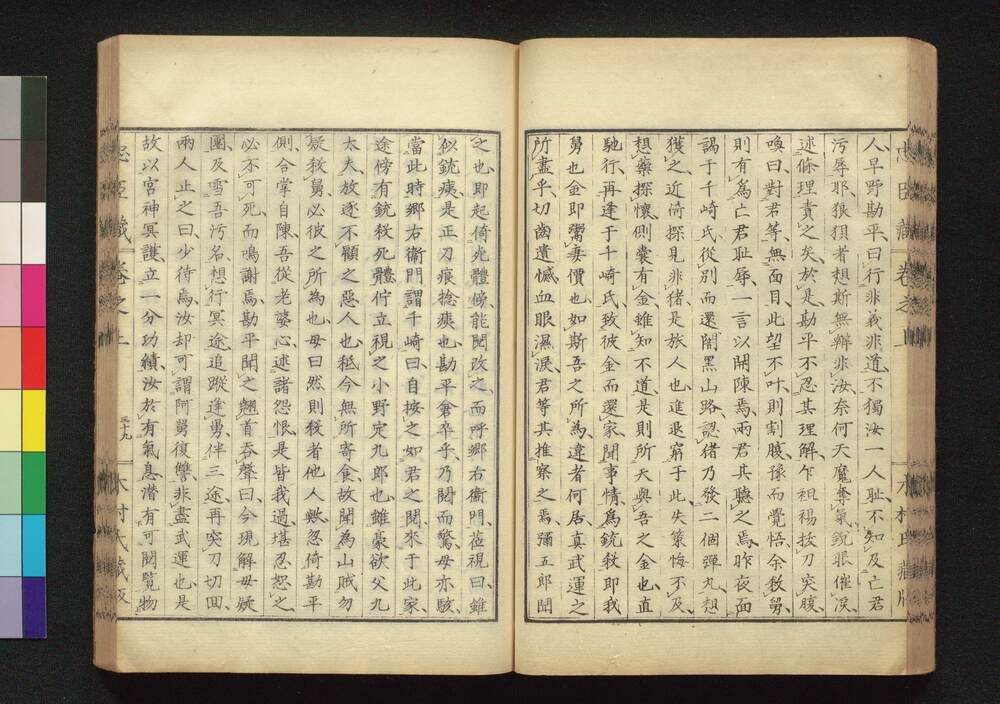 人早野勘平曰行非義非道不獨汝一人耻不知及亡君
污辱耶狼狽者想斯無辯非汝奈何天魔奪氣銳眼催淚
述條理責之矣於是勘平不忍其理解乍袒裼拔刀突腹
喚曰對君等無面目此望不叶則割腹豫而覺悟余殺舅
則有為亡君耻辱一言以開陳焉兩君其聽之焉昨夜面
謁于千崎氏從別而還闇黑山路認猪乃發二個彈丸想
獲之近倚探見非猪是旅人也進退窮于此失策悔不及
想藥探懷側囊有金雖知不道是則所天與吾之金也直
馳行再逢于千崎氏致彼金而還家聞事情為銃殺即我
舅也金即鬻妻價也如斯吾之所為違者何居真武運之
所盡乎切齒遺憾血眼濕淚君等其推察之焉彌五郎聞
之也即起倚死體傍能閱改之而呼鄉右衞門莅視曰雖
似銃痍是正刀痕捻痍也勘平倉卒乎乃閱而驚母亦駭
當此時鄉右衞門謂千崎曰自按之如君之閱來于此家
途傍有銃殺死體佇立視之小野定九郎也雖豪欲父九
太夫放逐不顧之惡人也秪今無所寄食故聞為山賊勿
疑殺舅必彼之所為也母曰然則殺者他人歟忽倚勘平
側合掌自陳吾從老婆心述諸怨恨是皆我過堪忍恕之
必不可死而鳴謝焉勘平聞之翹首吞聲曰今現解母疑
團及雪吾污名想行冥途追蹤逢舅伴三途再突刀切回
兩人止之曰少待焉汝却可謂阿舅復讐非盡武運也是
故以宮神冥護立一分功績汝於有氣息潛有可閱覽物
忠臣藏
卷之上
三十九
木村氏藏板